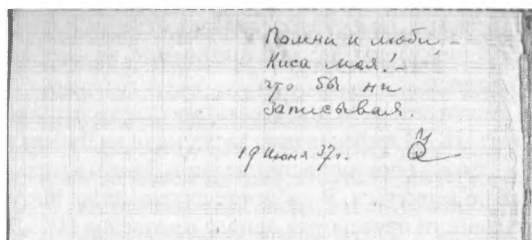 Помни и люби, –
Киса моя! –
что бы ни
записывал.
19 июня 37г.